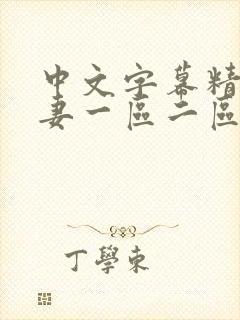 中文字幕精
妻一區二區
丁學東